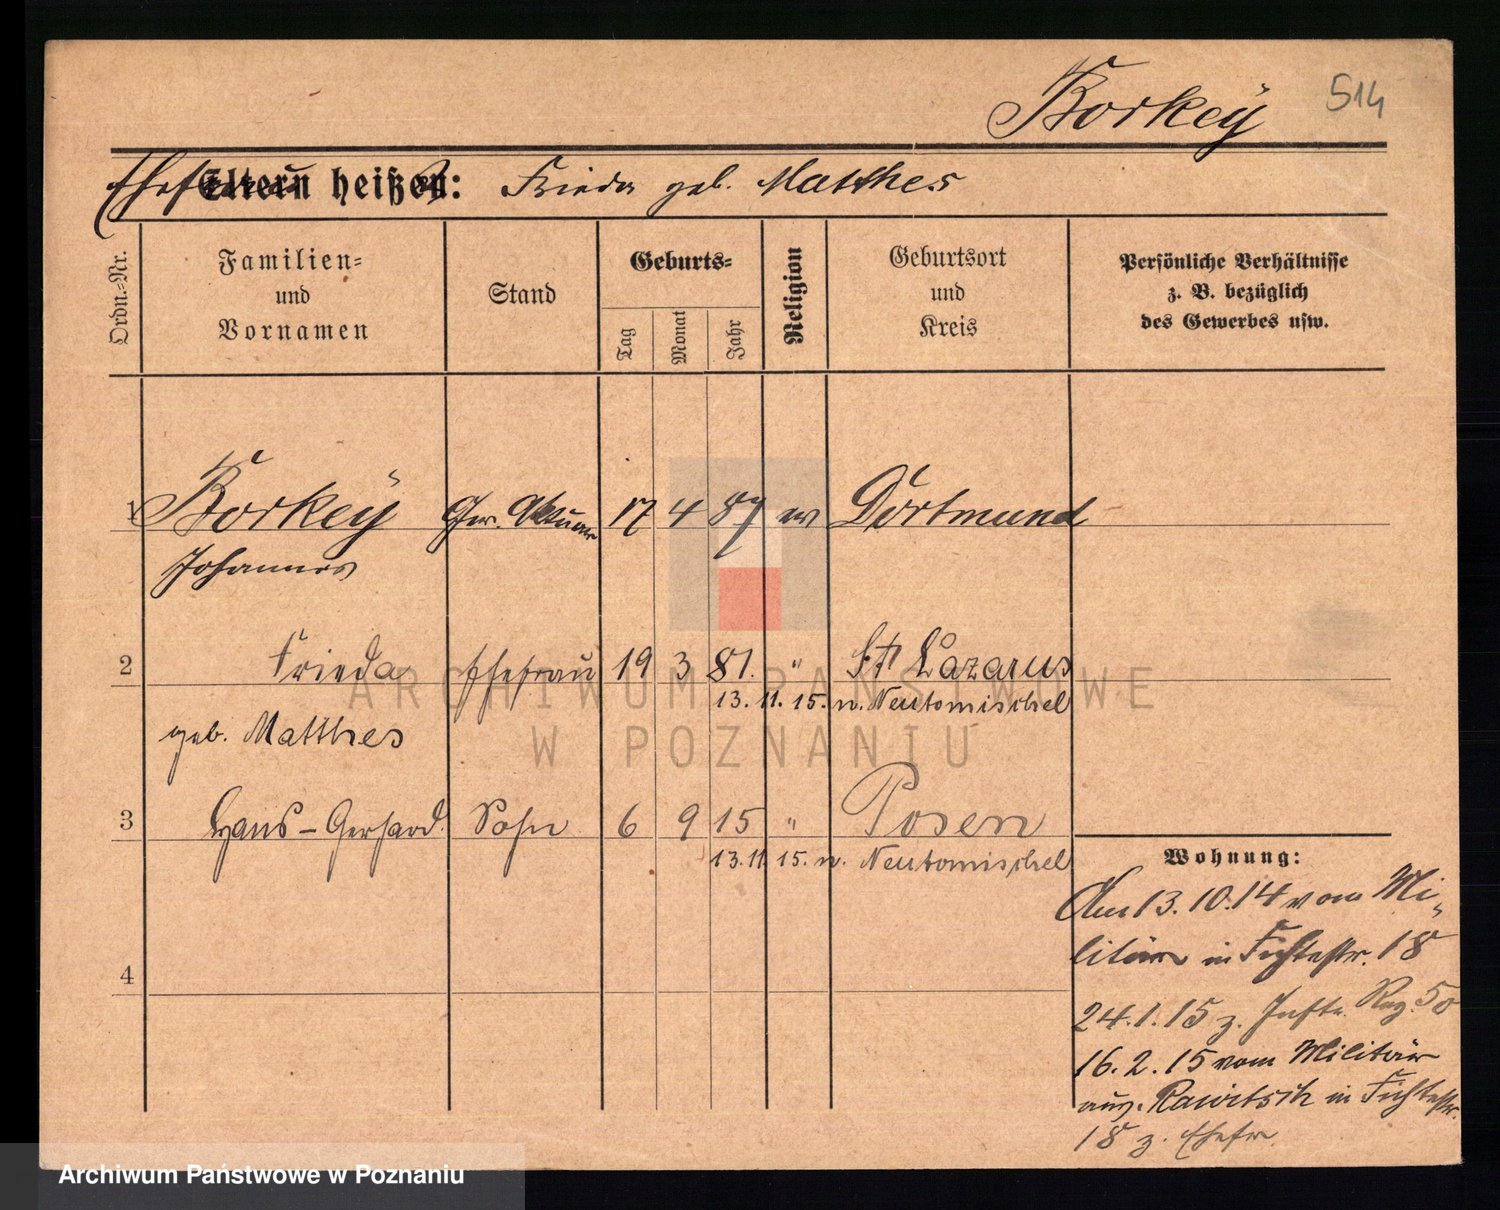 Borkeÿ 514
Ehefrau heißt: Frieda geb. Matthes
Ordn.-Nr.
Familien-
und
Vornamen
Stand
Geburts-
Tag
Monat
Jahr
Religion
Geburtsort
und
Kreis
Persönliche Verhältnisse
z. B. bezüglich
des Gewerbes usw.
1 Borkeÿ Ger. Aktuar 17 4 87 ev Dortmund
Johannes
2 Frieda Ehefrau 19 3 81. " St Lazarus
13. 11. 15. n. Neutomischel
geb. Matthes
3 Hans-Gerhard. Sohn 6 9 15 " Posen
13.11. 15. n. Neutomischel
4
Wohnung:
Am 13.10.14 vom Mi-
litär in Fichtestr. 18
24.1.15 z. Inftr. Reg. 50
16.2.15 vom Militär
aus Rawitsch in Fichtestr.
18 z. Ehefr.
ARCHIWUM PAŃSTWOWE
W POZNANIU
Archiwum Państwowe w Poznaniu